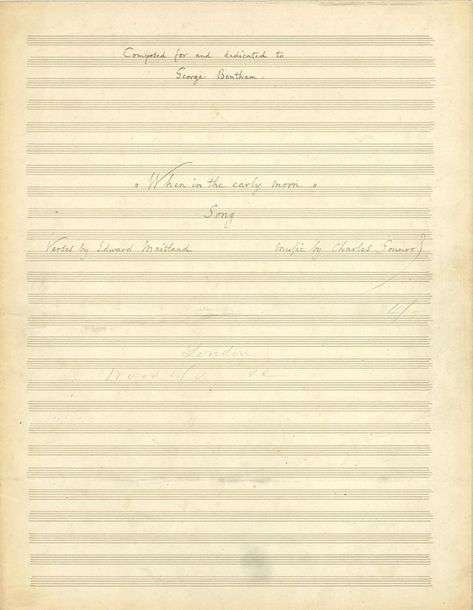 Composed for and dedicated to
George Bentham.
When in the early morn
Song
Verses by Edward Maitland music by Charles Gounod
London